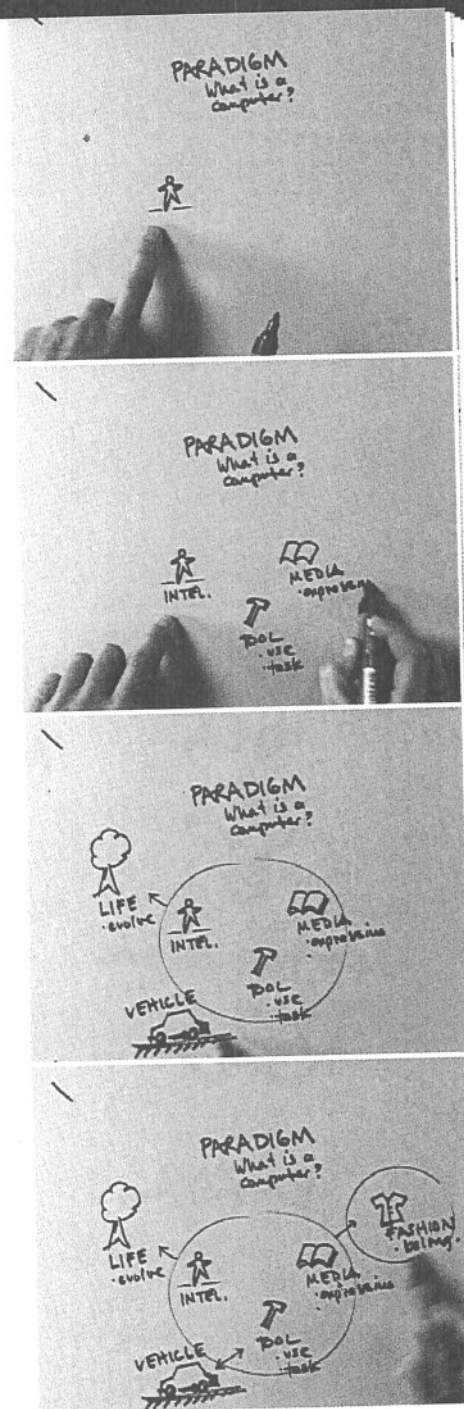 PARADIGM
What is a
computer?
PARADIGM
What is a
computer?
INTEL.
MEDIA
TOOL
• use
• task
PARADIGM
What is a
computer?
LIFE
• evolve
INTEL.
MEDIA
• expressive
TOOL
• use
• task
VEHICLE
PARADIGM
What is a
computer?
FASHION
• being.
LIFE
• evolve
INTEL.
MEDIA
• expressive
TOOL
• use
• task
VEHICLE